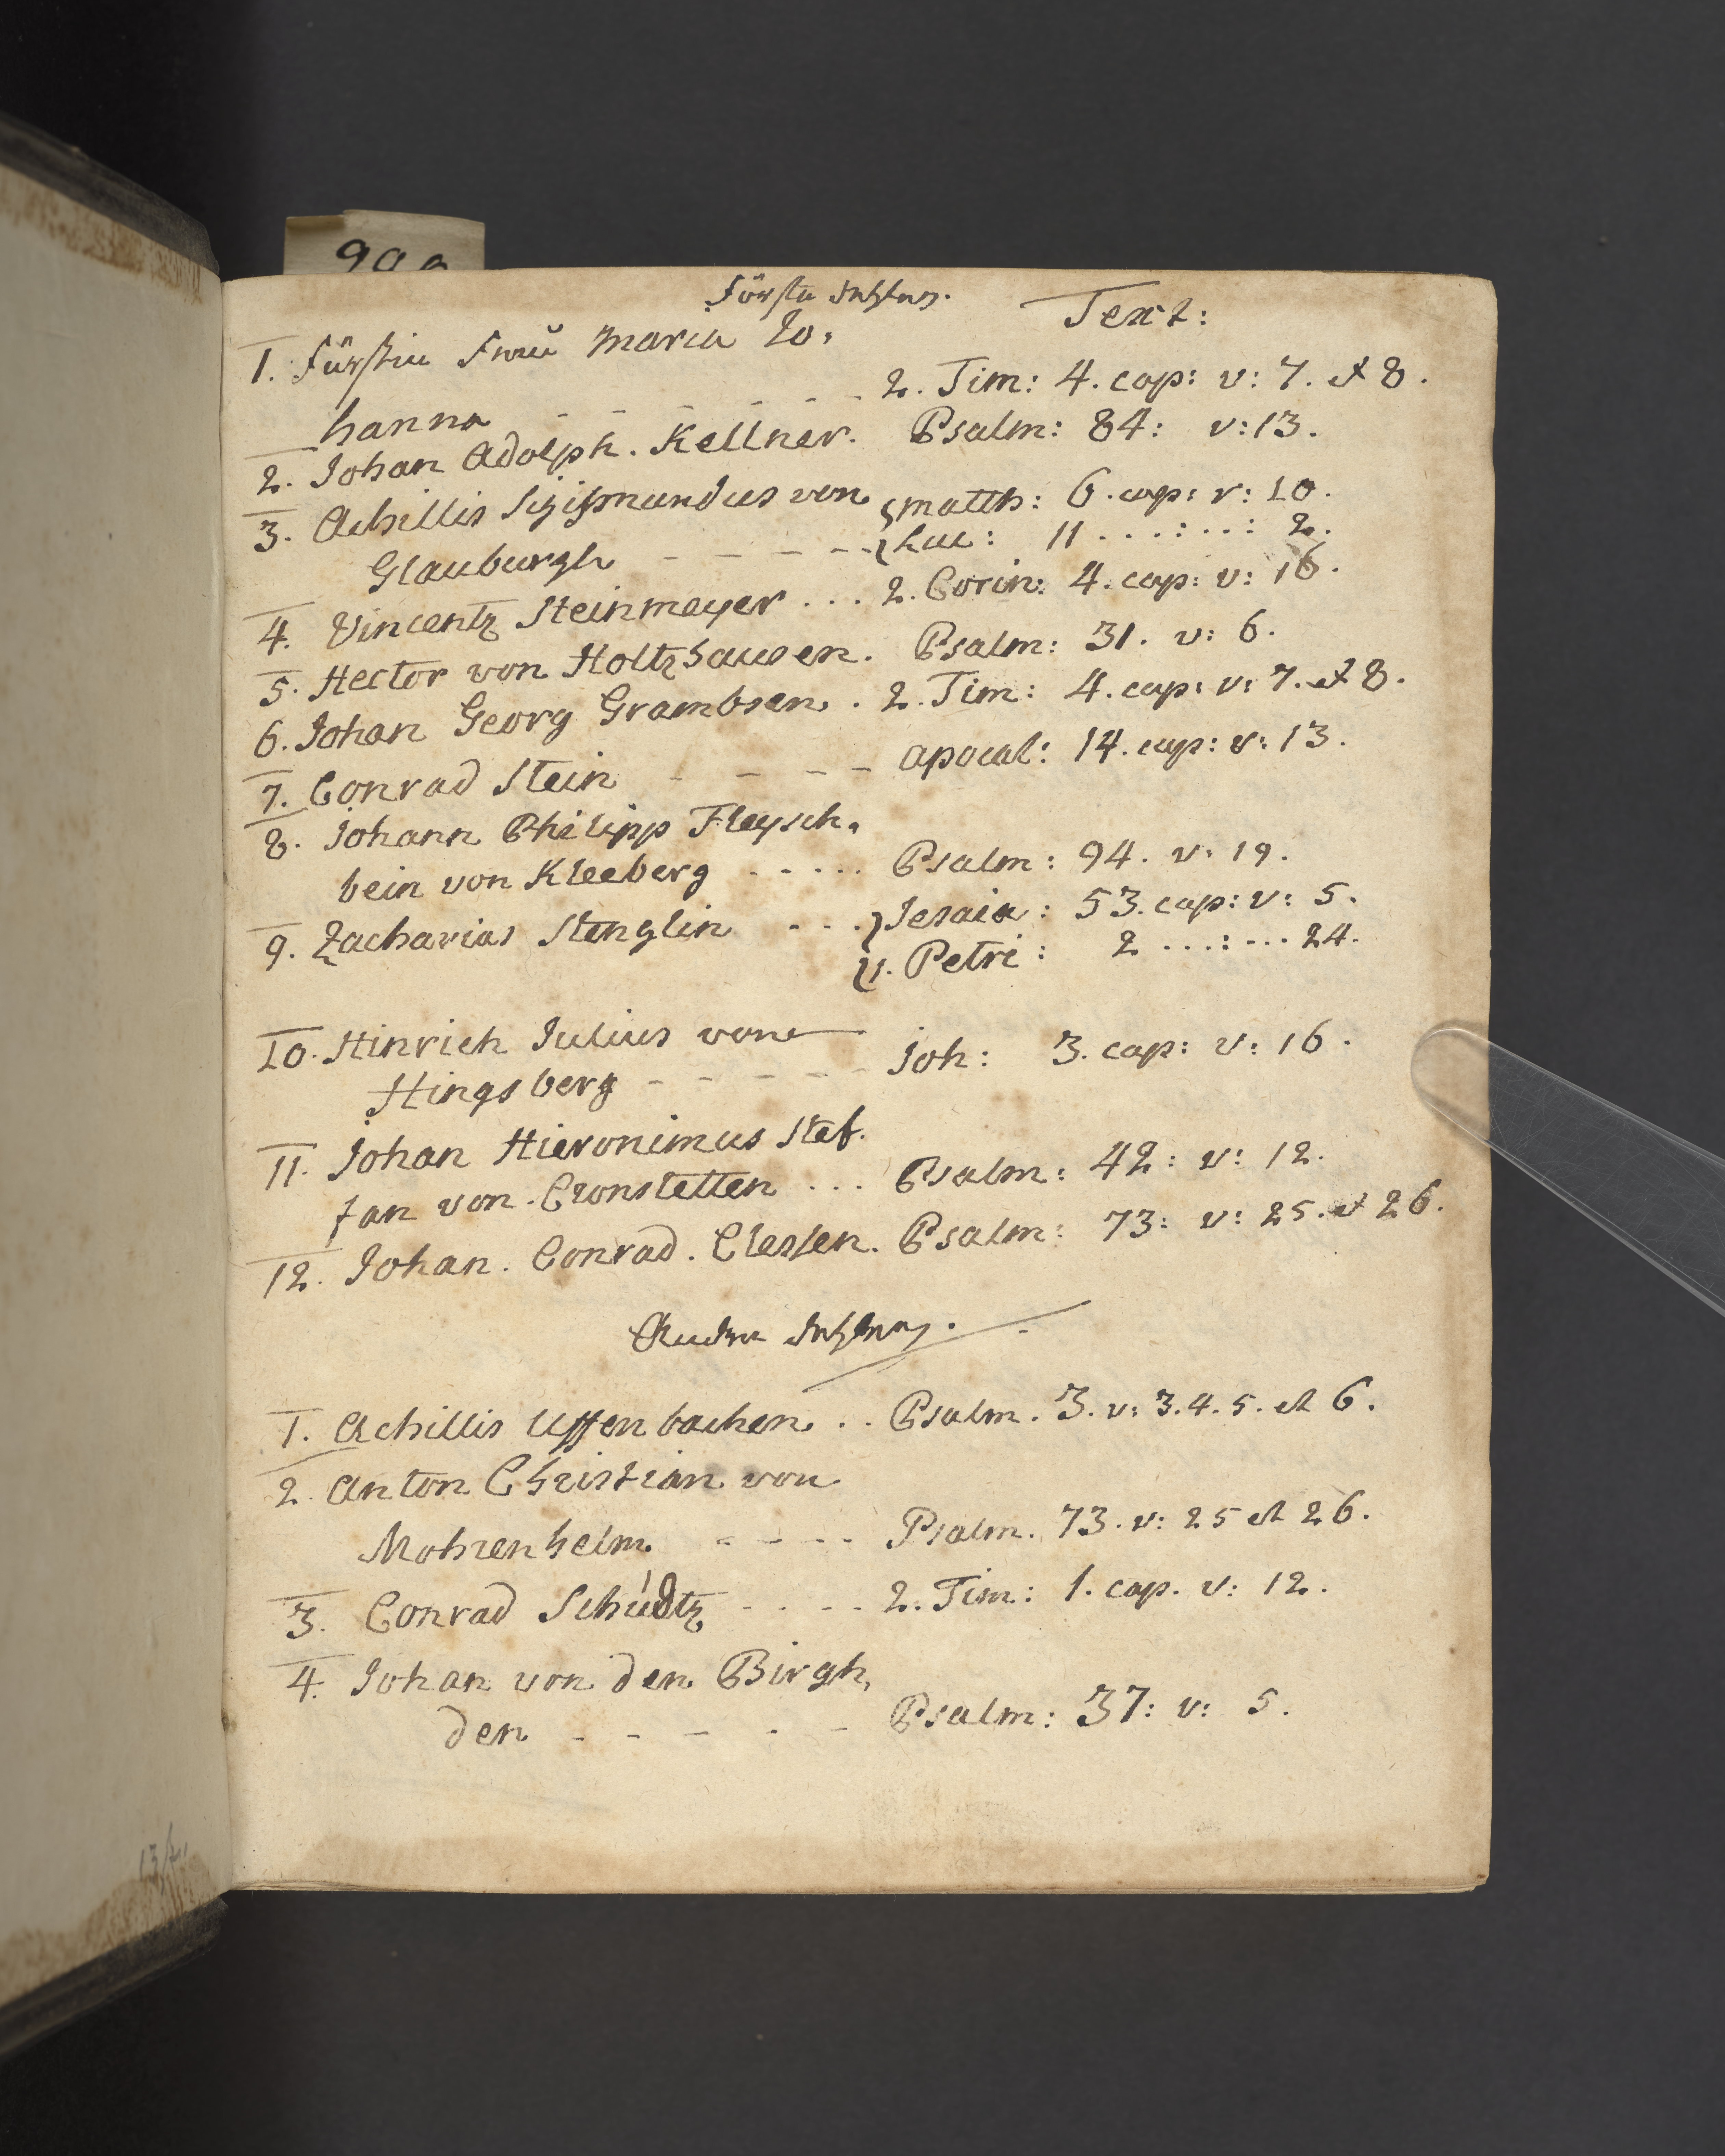 999
Text:
1. Fürstin Frau Maria Jo,
hanna - - - - - - 2. Tim: 4. cap: v: 7. et 8.
2. Johan Adolph. Kellner. Psalm: 84: v: 13.
3. Achillis Sigismundus von Matth: 6. cap: v: 10.
Glauburgh - - - - - Luc: 11 . . . : . . : 2.
4. Vincentz Steinmeyer . . . 2. Corin: 4. cap: v: 16.
5. Hector von Holtzhausen. Psalm: 31. v: 6.
6. Johan Georg Grambsen. . 2. Tim: 4. cap: v: 7. et 8.
7. Conrad Stein - - - - Apocal: 14. cap: v: 13.
8. Johann Philipp Fleysch,
bein von Kleeberg - - . . . Psalm: 94. v: 19.
9. Zacharias Stenglin - . . Jesaia: 53. cap: v: 5.
1. Petri: 2 . . . : . . . 24.
10. Hinrich Julius von
Hingsberg - - - - - - Joh: 3. cap: v: 16.
11. Johan Hieronimus Stef.
fan von Cronstetten . . . Psalm: 42: v: 12.
12. Johan. Conrad. Clessen. Psalm: 73: v: 25. et 26.
1. Achillis Uffenbachen. . . Psalm. 3. v: 3. 4. 5. et 6.
2. Anton Christian von
Mohrenhelm. - - - - Psalm. 73. v: 25 et 26.
3. Conrad Schüdtz - - - - 2. Tim: 1. cap. v: 12.
4. Johan von den Birgh,
den - - - - - Psalm: 37: v: 5.